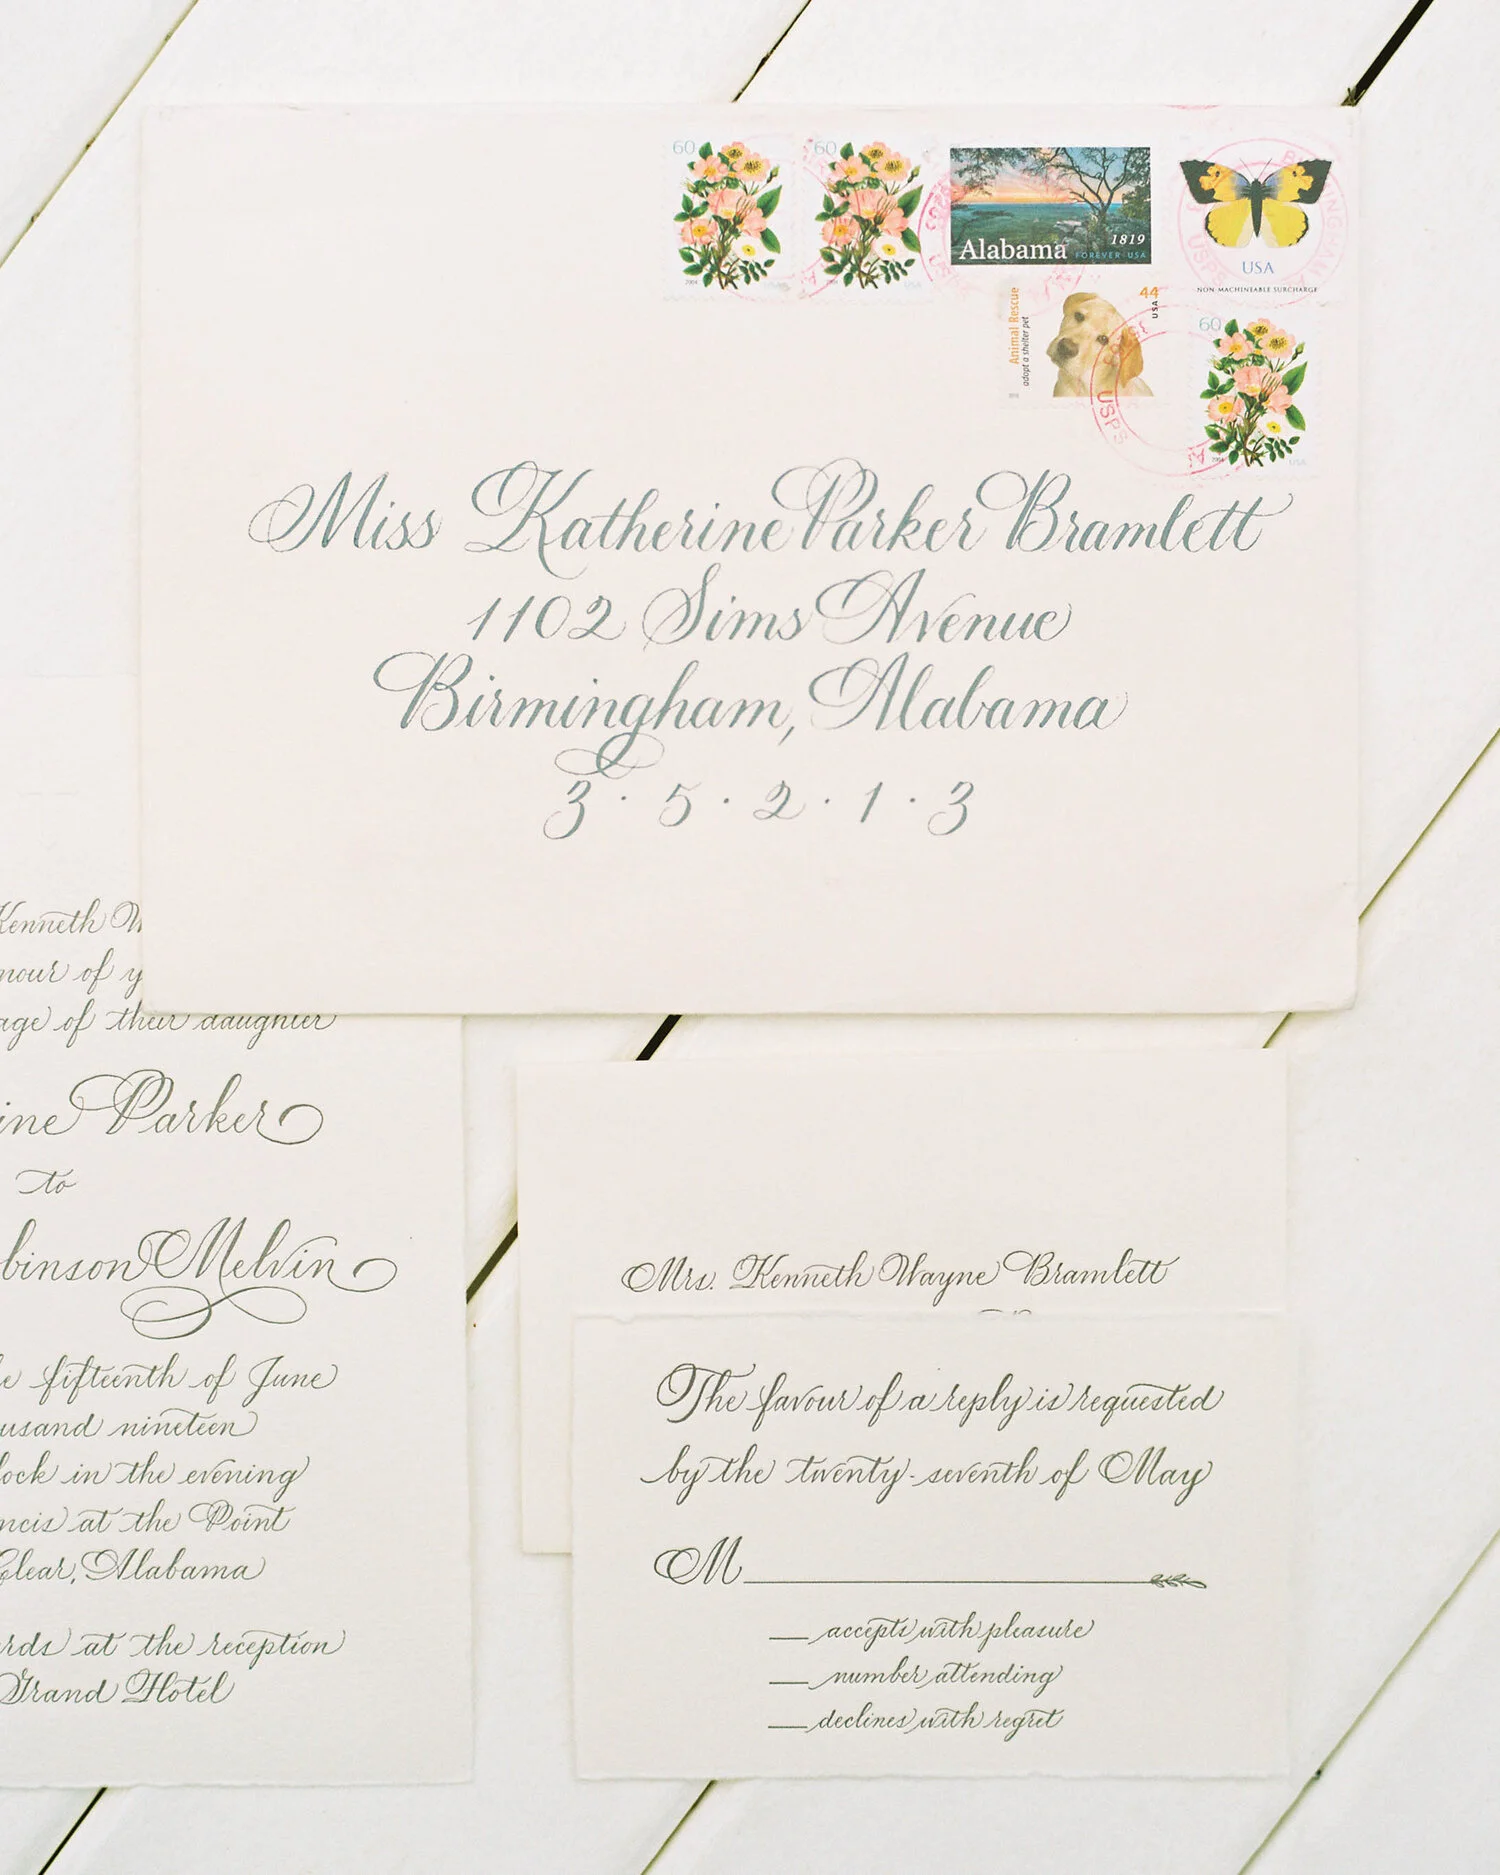 60
60
Alabama
1819
FOREVER USA
USA
NON-MACHINEABLE SURCHARGE
USPS
BIRMINGHAM
2004
2004
Animal Rescue
adopt a shelter pet
44
USA
2010
USPS
60
2004
USA
Miss Katherine Parker Bramlett
1102 Sims Avenue
Birmingham, Alabama
3 · 5 · 2 · 1 · 3
Kenneth W
nour of y
age of their daughter
ine Parker
to
binson Melvin
e fifteenth of June
usand nineteen
lock in the evening
ncis at the Point
Clear, Alabama
rds at the reception
Grand Hotel
Mrs. Kenneth Wayne Bramlett
The favour of a reply is requested
by the twenty-seventh of May
M
accepts with pleasure
number attending
declines with regret